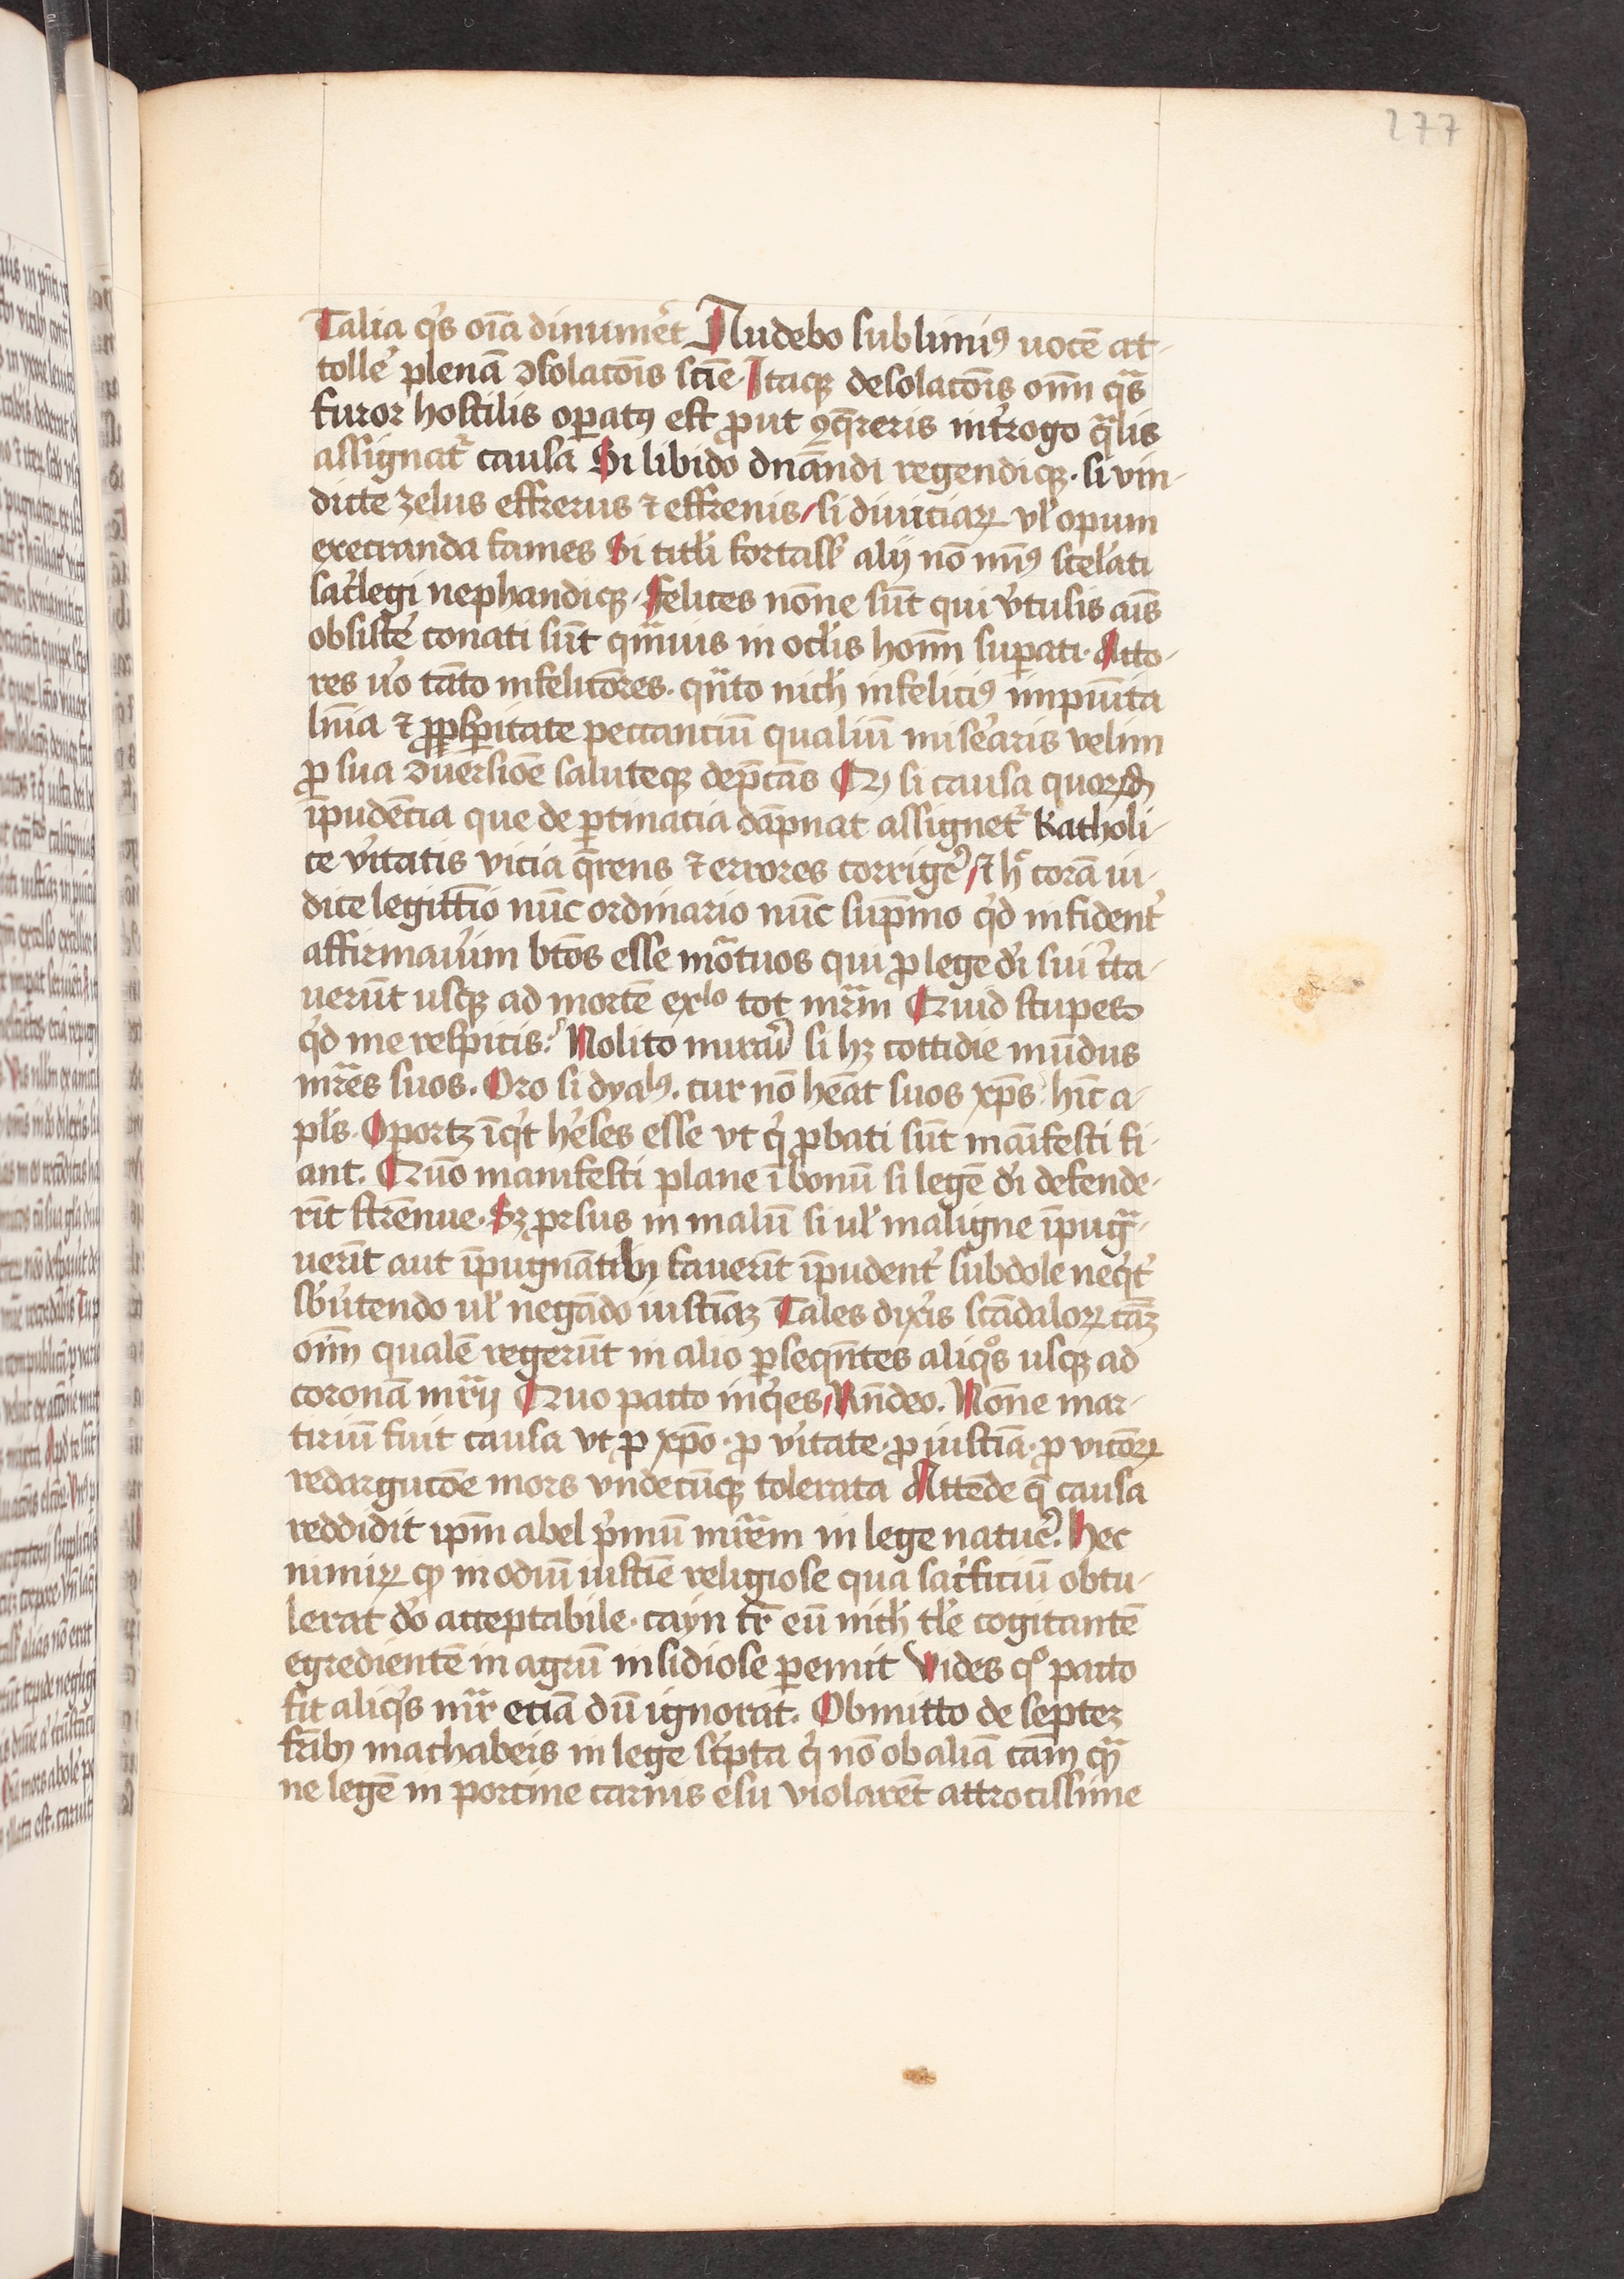 277
Talia qͥs oīa dinumēt Audebo sublimiꝰ uocē at-
tolle᷑ plenā ꝯsolacōis scīe. Itaqꝫ desolacōis om̄i qᷓs
furor hostilis oꝑatꝰ est ꝓut ꝯq̄reris int᷑rogo qᷓlis
assignatᷣ causa Si libido dn̄andi regendiqꝫ. si vin-
dicte zelus efferus ⁊ effrenis / si diuiciaꝝ vl̓ opum
execranda fames Si titl̓i fortass̓ alij nō min᷑ꝰ scel᷑ati
sac᷑legi nephandiqꝫ. Felices nōne sūt qui v᷑tusis aīs
obsiste᷑ conati sūt qᷓmuis in ocl̓is hoīm suꝑati. Acto-
res u᷑o tāto infelicōres. qᷓnto nich̓ infeliciꝰ impūita
lnīa ⁊ ꝓsꝑitate peccanciū qualiū mise᷑aris velim
ꝓ sua ꝯuersiōe saluteqꝫ dep̄cās Qꝫ si causa quorūdā
īpudēcia que de ꝑtinacia dāpnat assignetᷣ Katholi-
ce v᷑itatis vicia q̄rens ⁊ errores corrige᷑ / ⁊ hͦ corā iu-
dice legittīo nūc ordinario nūc sup̄mo qͥd infident᷑
affirmau᷑im btōs esse moᷣtuos qui ꝓ lege dī sui c᷑ta-
uerūt usqꝫ ad mortē exͫlo tot mr̄m Quid stupes
qͥd me respicis? Nolito mirari si hꝫ cottidie mūdus
mr̄es suos. Oro si dyablꝰ. cur nō heāt suos xp̄s. hīc a-
pl̓s. Oportꝫ īqͥt he᷑ses esse vt qͥ ꝓbati sūt māifesti fi-
ant. Quō manifesti plane ī bonū si legē dī defende-
rīt strēnue. Sꝫ ꝓrsus in malū si ul̓ maligne īpugᷓ-
uerīt aut īpugnātibꝫ fauerīt īpudent᷑ subdole neqͥt᷑
sb̓u᷑tendo ul̓ negādo iusticiaꝫ Tales dix᷑is scādaloꝝ cāꝫ
oīm qualē regerūt in alio ꝑseqn̄tes aliqͦs usqꝫ ad
coronā mr̄ij Quo pacto inqͥes / Rn̄deo. Nōne mar-
tiriū fuit causa vt ꝓ xp̄o. ꝓ v᷑itate. ꝓ iusticiā. ꝓ vicōꝝ
redargucōe mors vndecūqꝫ tolerata Attēde q̄ causa
reddidit ip̄m abel pͥmū mr̄em in lege nature᷑. Hec
nimiꝝ qꝫ in odiū iusticie religiose qua sac᷑ficiū obtu-
lerat dō acceptabile. cayn fr̄ eū nich̓ tl̓e cogitantē
egredientē in agrū insidiose ꝑemit Vides qͦ pacto
fit aliqͥs mr̄ etiā dū ignorat. Obmitto de septeꝫ
fr̄ibꝫ machabeis in lege sc᷑pta qͥ nō ob aliā cām qᷓ
ne legē in porcine carnis esu violarēt attrocissime